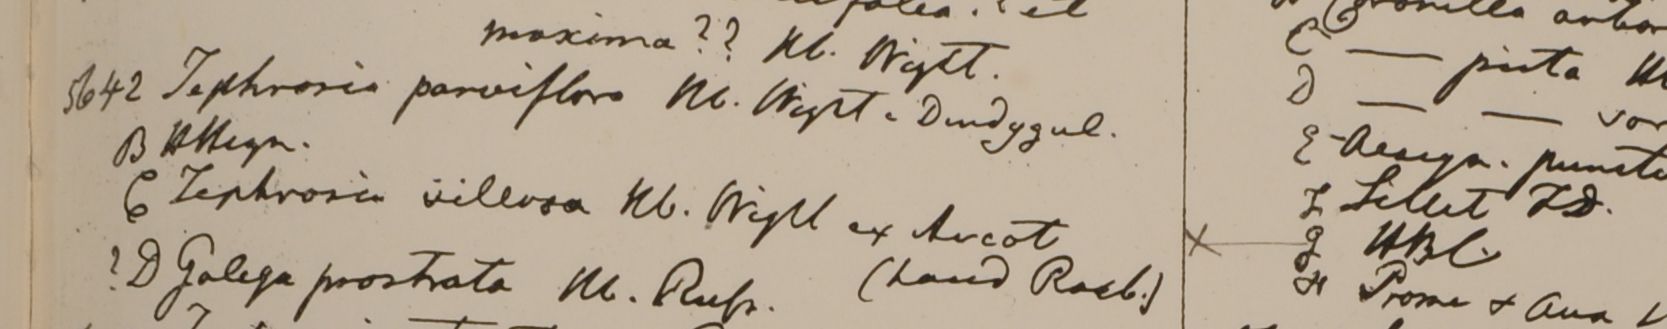 maxima ?? Hb. Wight.
5642 Tephrosia parviflora Hb. Wight e Dindygul.
B HHeyn.
C Tephrosia villosa Hb. Wight ex Arcot
? D Galega prostrata Hb. Russ. (haud Roxb.)
C — picta
D — —
E punct
F Sillet FD.
G HBC.
H Prome & Ava